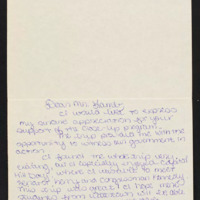 Dear Mr.
I would like to express
my sincere appreciation for your
support of the Close-up program.
The trip provided me with the
opportunity to witness our government in
action.
I found the whole trip very
exciting, but I especially enjoyed Capitol
Hill Day, where I was able to meet
Senator and Congressman Kennedy.
This was great! I hope more
students from will be able